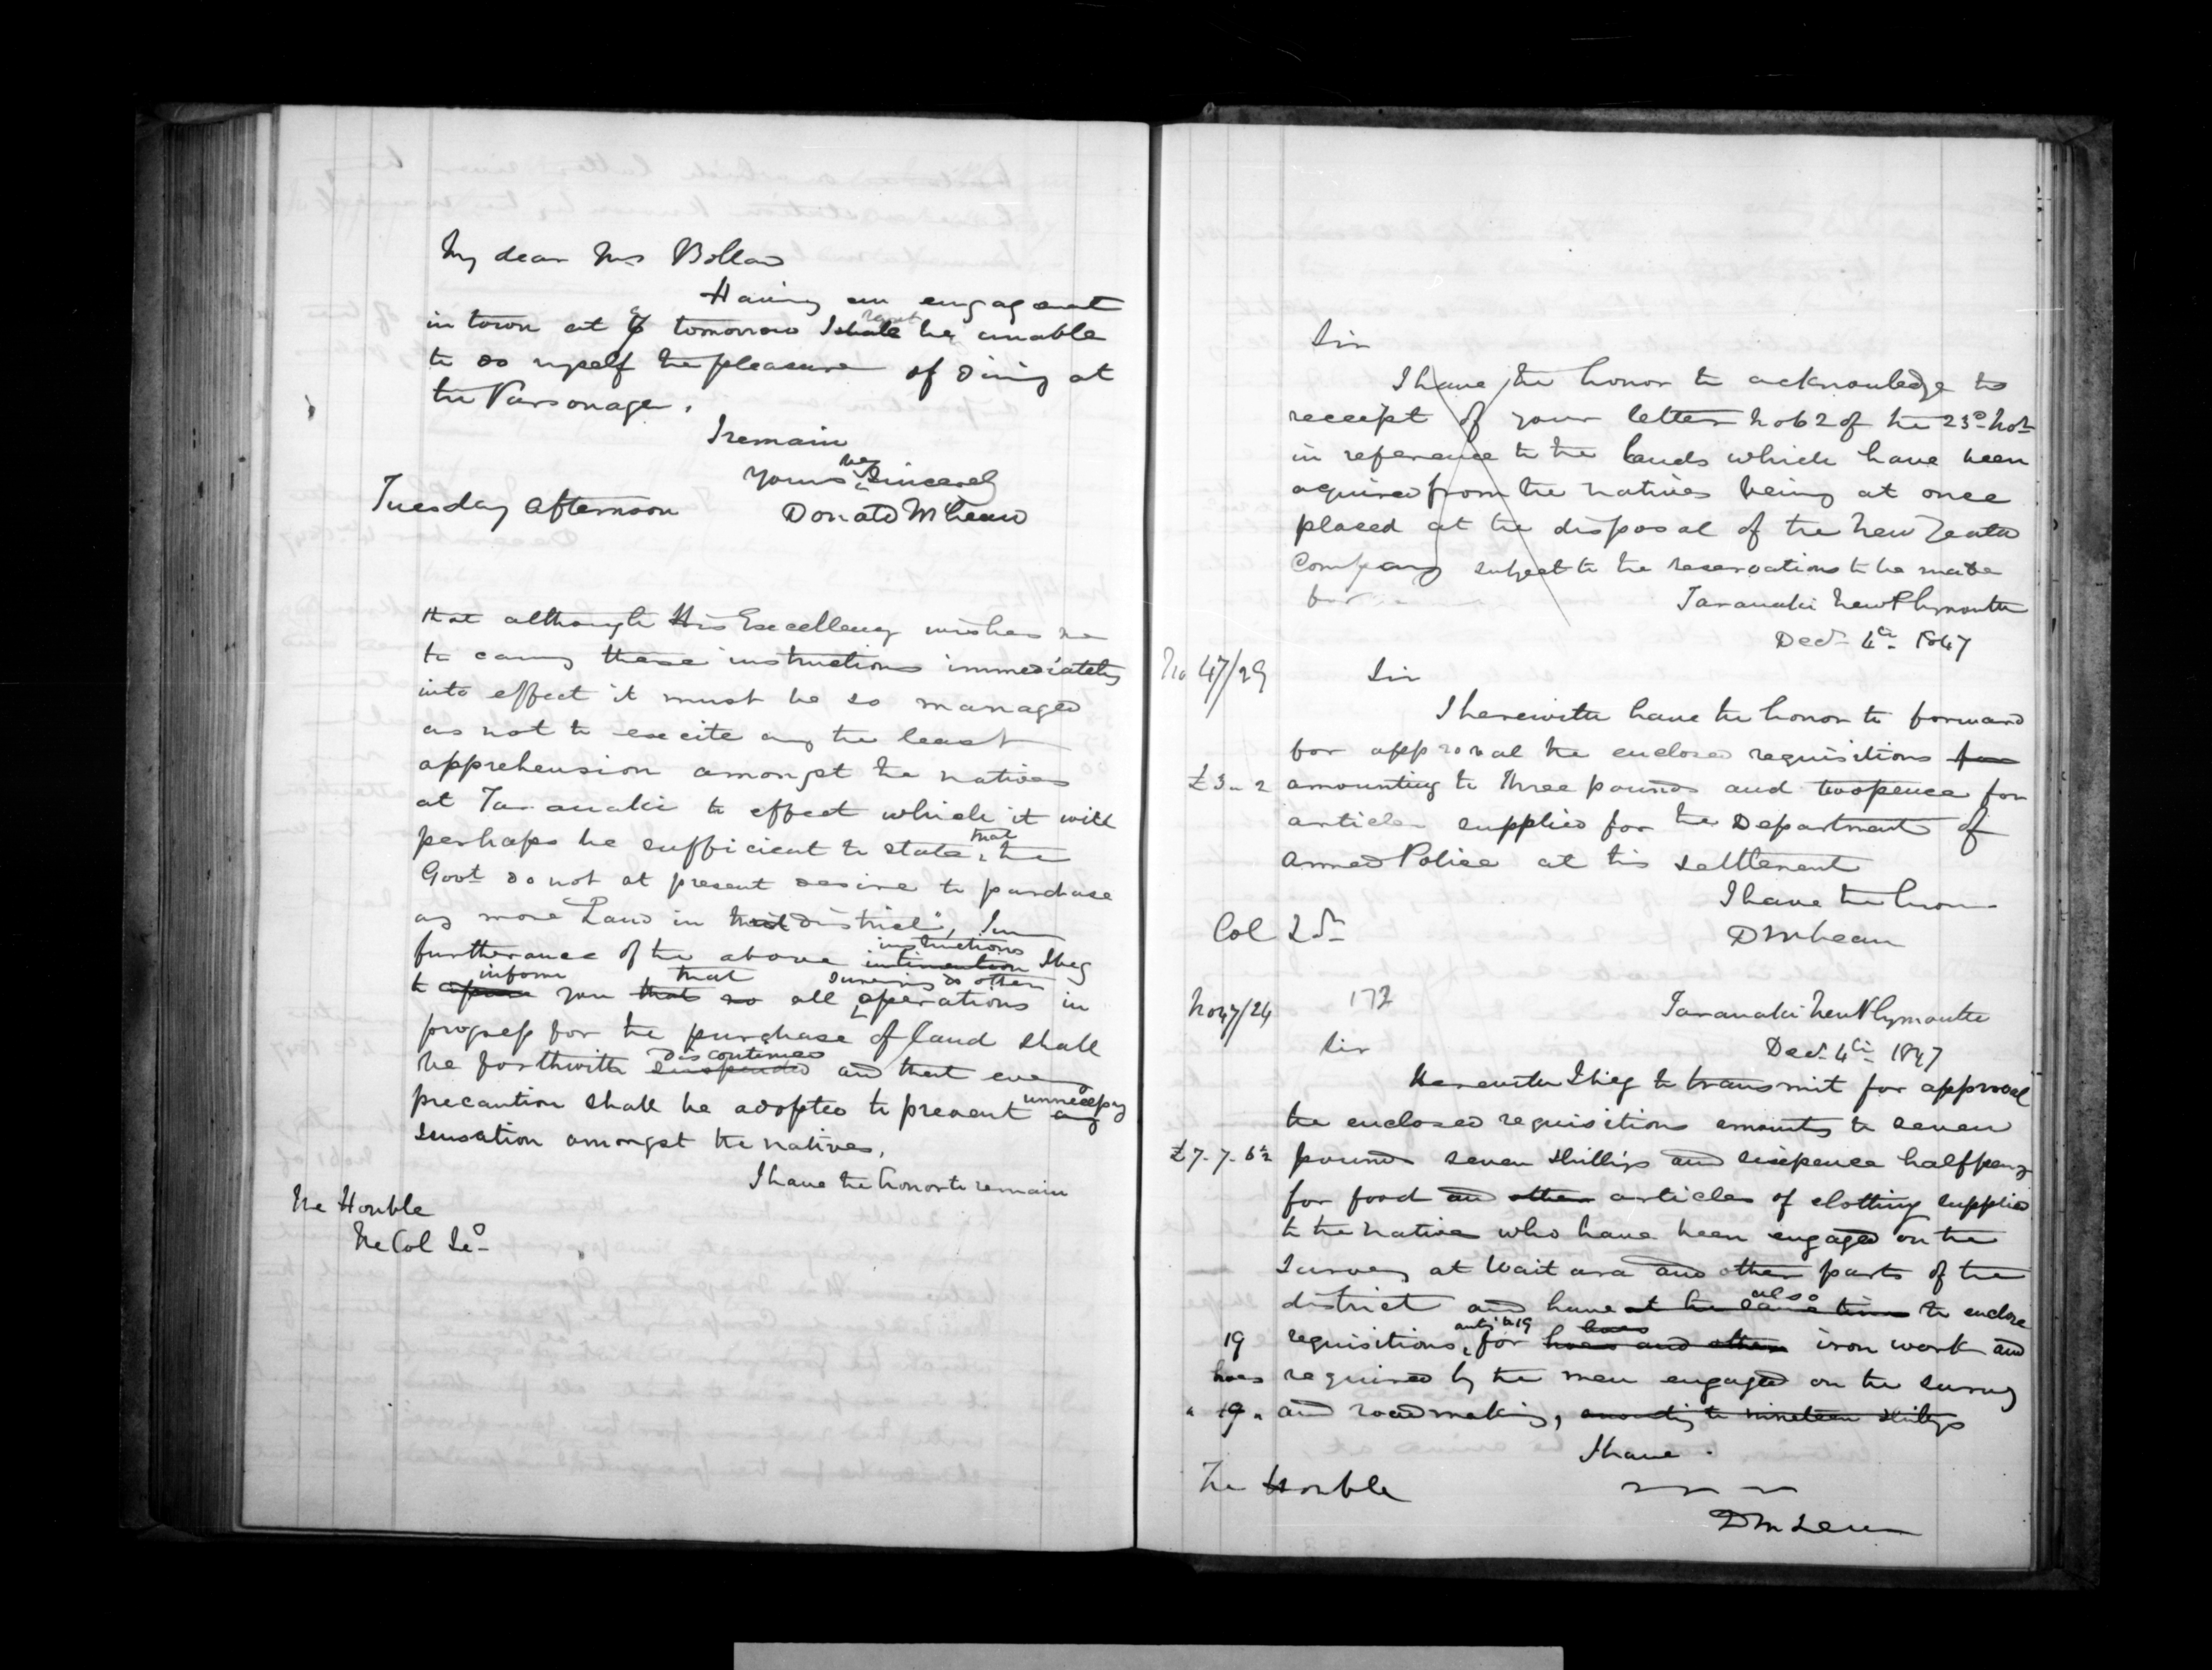 My dear Mrs Bolland
Having an engagement
in town at 6 tomorrow I shall regret be unable
to do myself the pleasure of dining at
the Parsonage.
I remain
yours very sincerely
Tuesday afternoon Donald McLean
that although His Excellency wishes me
to carry these instructions immediately
into effect it must be so managed
as not to excite any the least
apprehension amongst the natives
at Taranaki to effect which it will
perhaps be sufficient to state, that the
Govt do not at present desire to purchase
any more Land in that district", In
furtherance of the above intimation instructions I beg
to inform you that so that all surveys & other operations in
progress for the purchase of land shall
be forthwith suspended discontinued and that every
precaution shall be adopted to prevent any unnecessary
sensation amongst the natives.
I have the honor to remain
The Honble
The Col Sec
Sir
I have the honor to acknowledge the
receipt of your letter No 62 of the 23d Nov
in reference to the lands which have been
aquired from the natives being at once
placed at the disposal of the New Zeald
Company subject to the reservations to be made
for
Taranaki New Plymouth
Decr 4th 1847
No 47/29 Sir
I herewith have the honor to forward
for approval the enclosed requisitions for
£3 - 2 amounting to three pounds and twopence for
articles supplied for the Department of
Armed Police at this settlement
I have the honor
Col Sec DMcLean
No 47/24 172 Taranaki New Plymouth
Sir Decr 4th 1847
Herewith I beg to transmit for approval
the enclosed requisitions amounting to seven
£7-7-6½ pounds seven shillings and sixpence halfpenny
for food and other articles of clothing supplied
to the natives who have been engaged on the
Survey at Waitara and other parts of the
district and have at the same time also to enclose
19 requisitions, amtg to 19 for hoes and other hoes iron work and
hoes required by the men engaged on the survey
" 19 " and road making, amounting to nineteen shillings
I have
The Honble
DMcLean